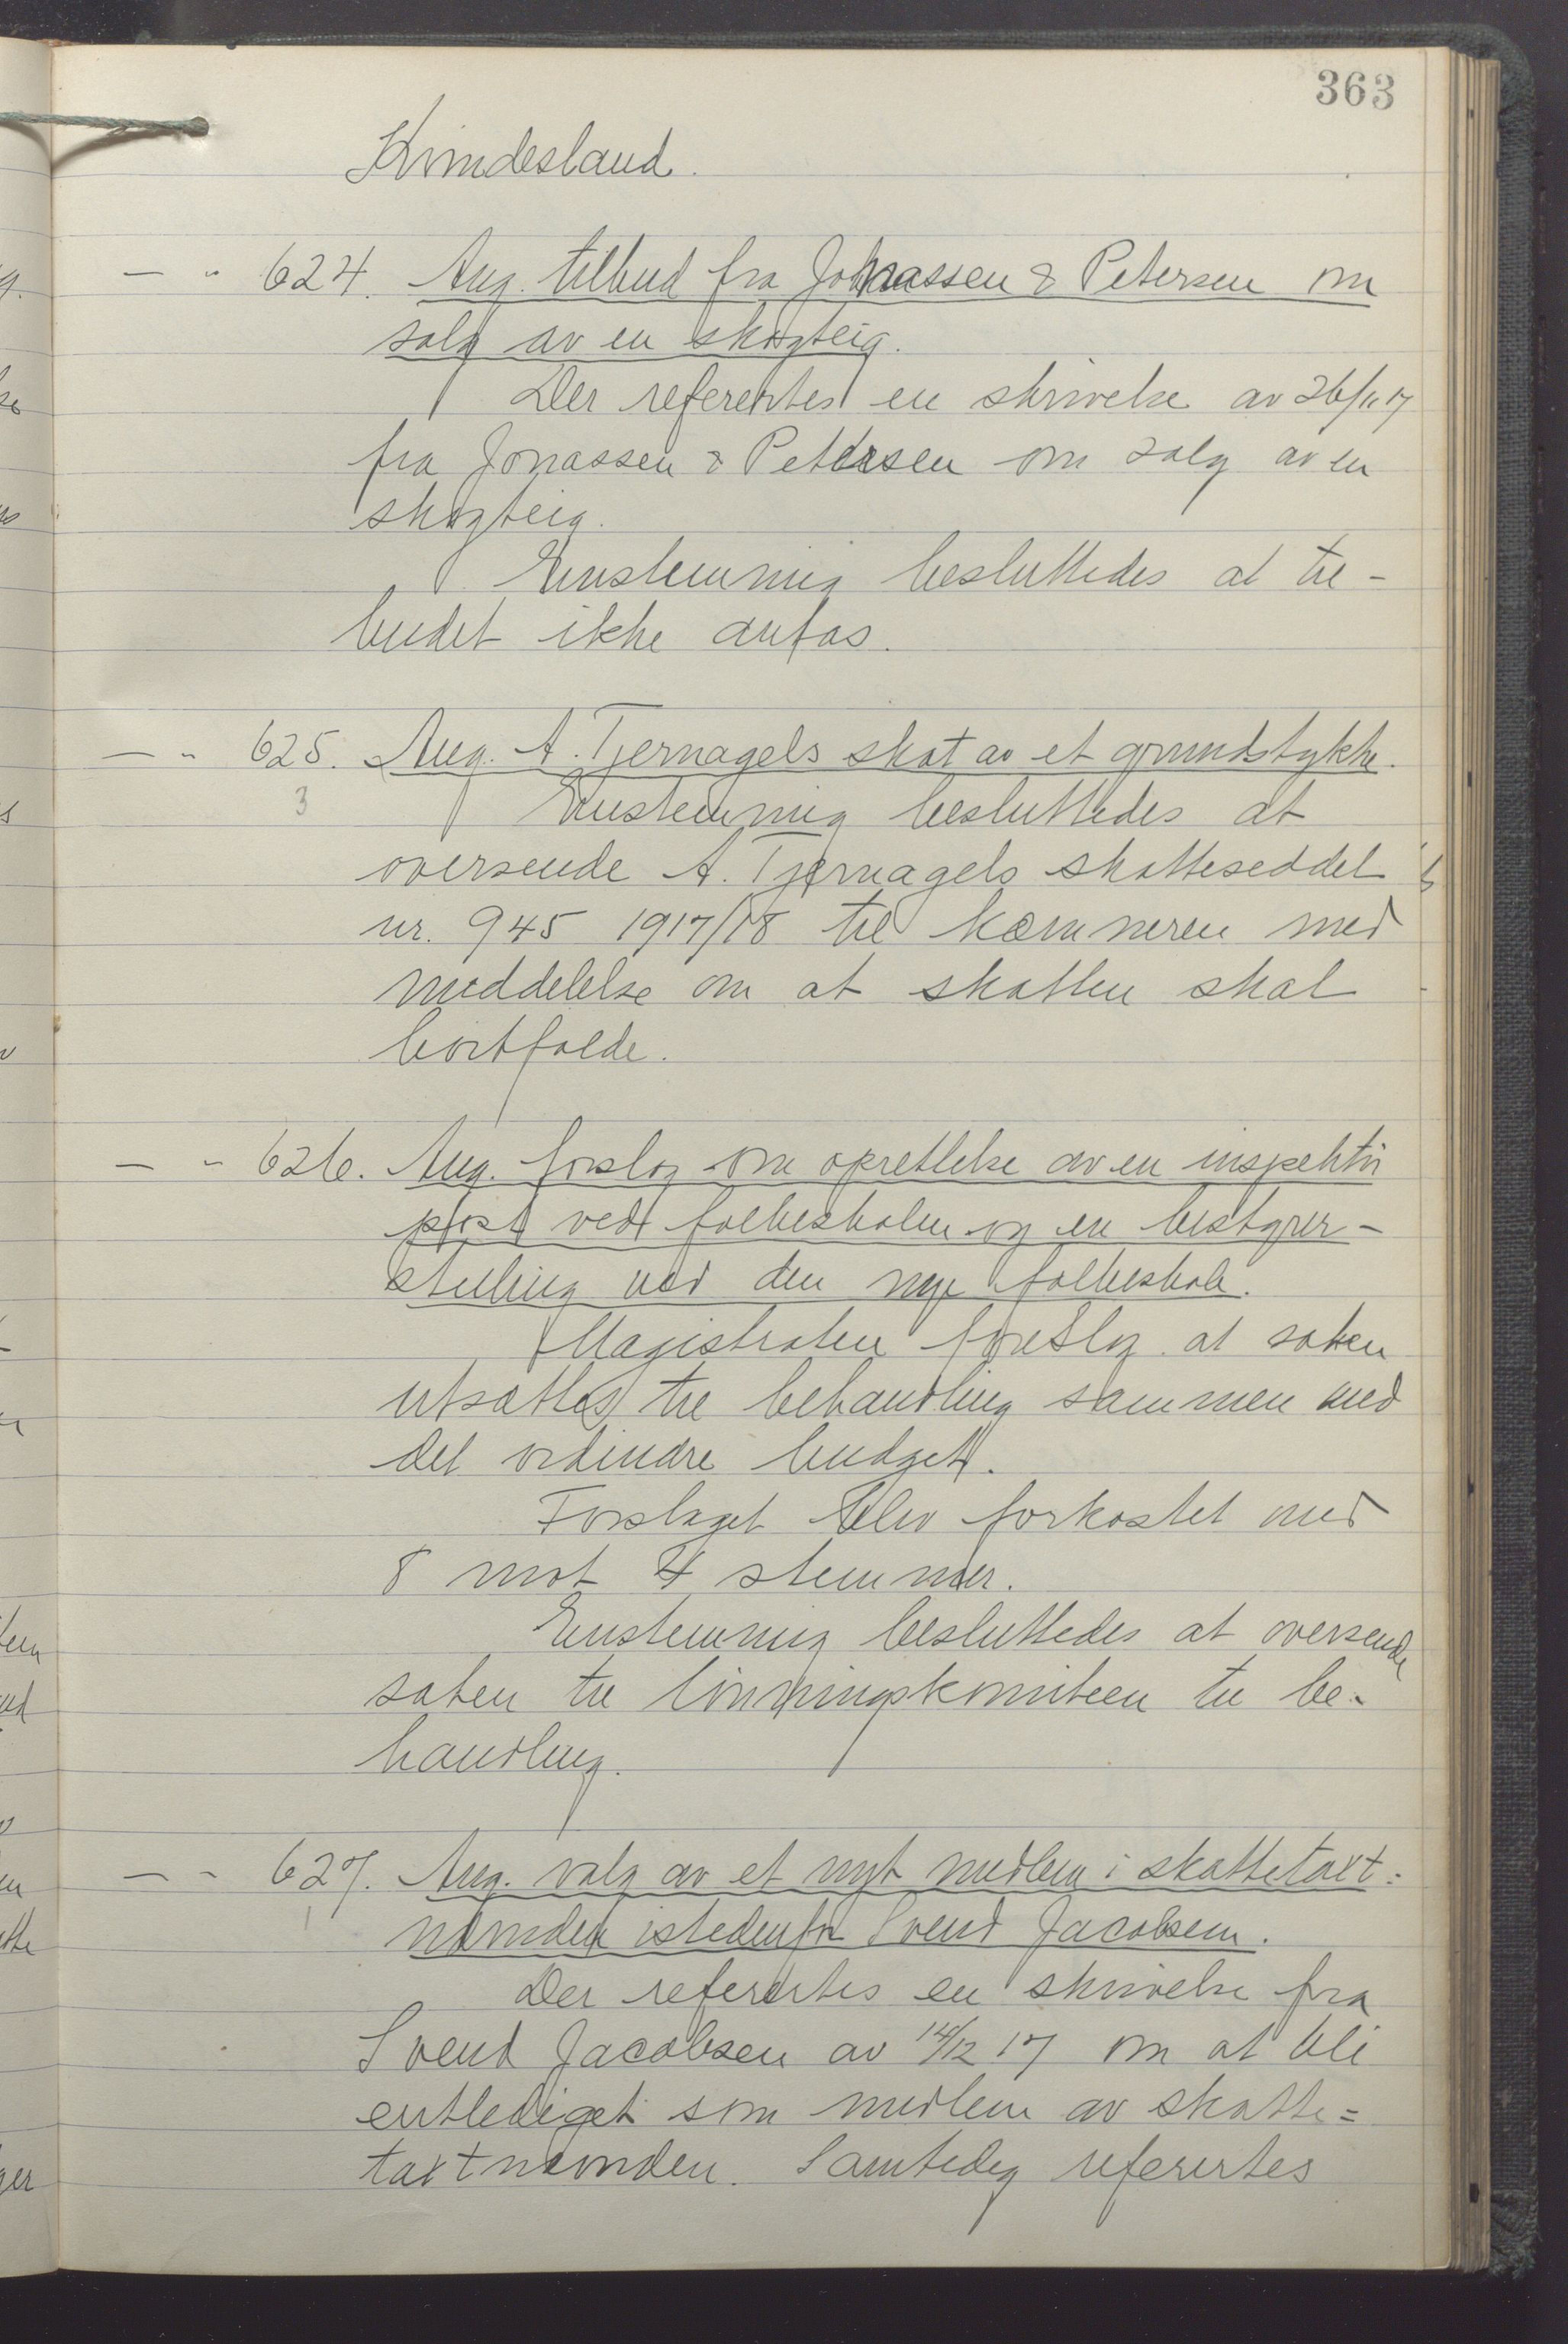 363
Kvindesland.
— " 624. Ang. tilbud fra Jonassen & Petersen om
salg av en skogteig.
Der refertes en skrivelse av 26/11 17
fra Jonassen & Petersen om salg av en
skogteig.
Enstemmig besluttedes at til-
budet ikke antas.
— " 625. Ang. A. Tjernagels skat av et grundstykke.
3 Enstemmig besluttedes at
oversende A. Tjernagels skatteseddel
nr. 945 1917/18 til kæmneren med
meddelelse om at skatten skal
bortfalde.
— " 626. Ang. forslag om oprettelse av en inspektør
post ved folkeskolen og en bestyrer-
stilling ved den nye folkeskole.
Magistraten foreslog at saken
utsættes til behandling sammen med
det ordinære budget.
Forslaget blev forkastet med
8 mot 4 stemmer.
Enstemmig besluttedes at oversende
saken til lønningskomiteen til be-
handling.
— " 627. Ang. valg av et nyt medlem i skattetaxt=
1 nævnden istedenfor Svend Jacobsen.
Der refertes en skrivelse fra
Svend Jacobsen av 14/12 17 om at bli
entlediget som medlem av skatte=
taxtnævnden. Samtidig refertes